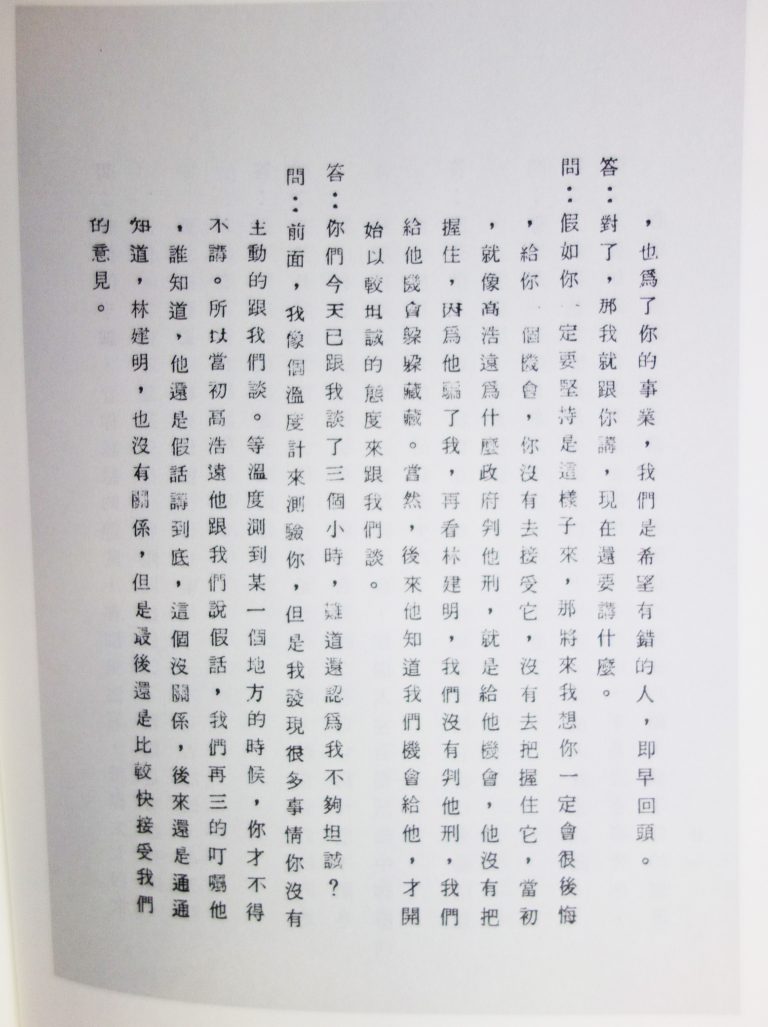 ，也爲了你的事業，我們是希望有錯的人，即早回頭。
答：對了，那我就跟你講，現在還要講什麼。
問：假如你一定要堅持是這樣子來，那將來我想你一定會很後悔
，給你一個機會，你沒有去接受它，沒有去把握住它，當初
，就像高浩遠爲什麼政府判他刑，就是給他機會，他沒有把
握住，因爲他騙了我，再看林建明，我們沒有判他刑，我們
給他機會躲躲藏藏。當然，後來他知道我們機會給他，才開
始以較坦誠的態度來跟我們談。
答：你們今天已跟我談了三個小時，難道還認爲我不夠坦誠？
問：前面，我像個溫度計來測驗你，但是我發現很多事情你沒有
主動的跟我們談。等溫度測到某一個地方的時候，你才不得
不講。所以當初高浩遠他跟我們說假話，我們再三的叮嚀他
，誰知道，他還是假話講到底，這個沒關係，後來還是通通
知道，林建明，也沒有關係，但是最後還是比較快接受我們
的意見。